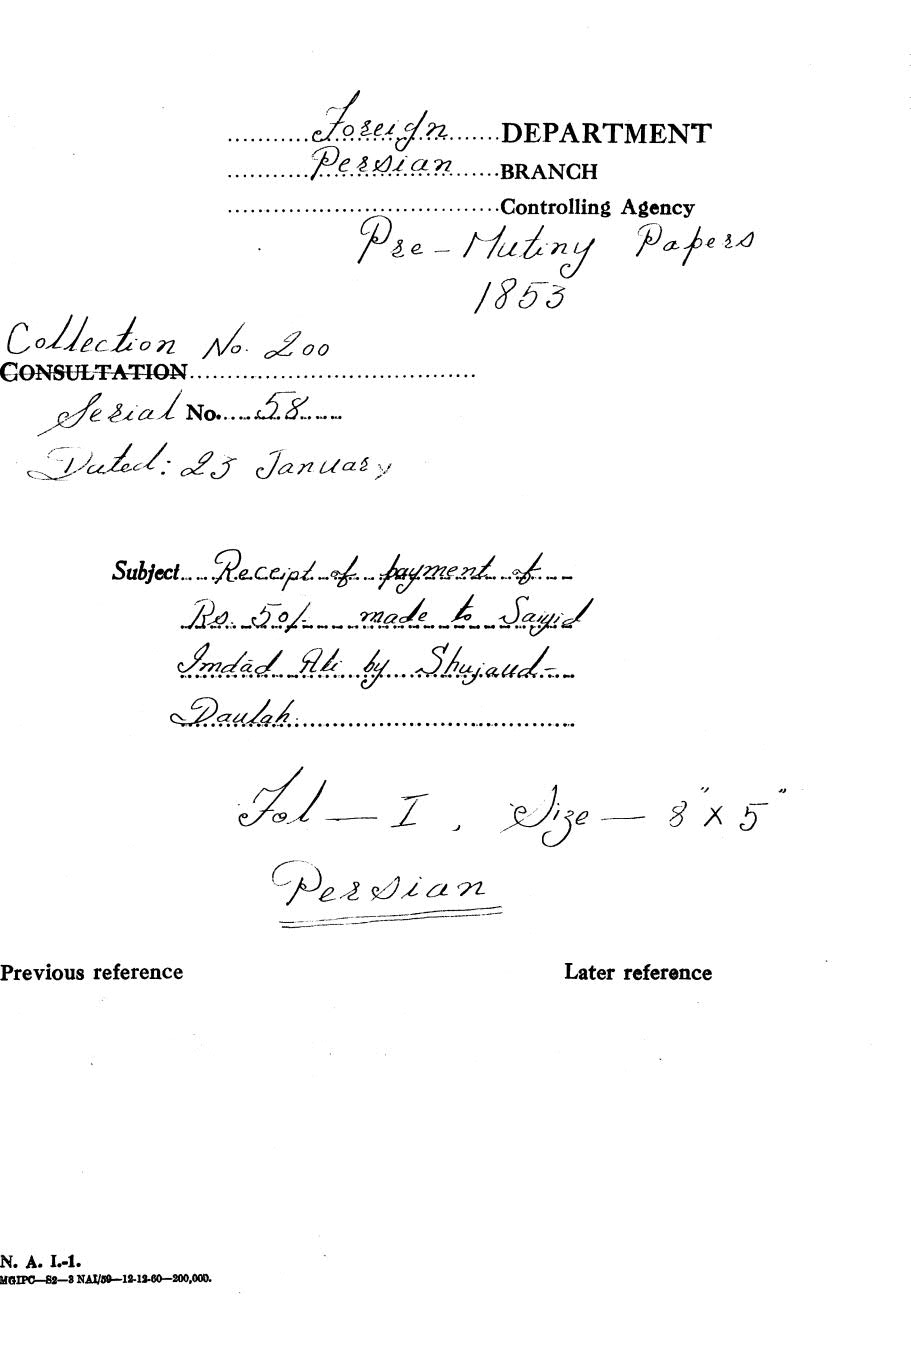 Foreign DEPARTMENT
Persian BRANCH
Controlling Agency
Pre-Mutiny Papers
1853
Collection No. 200
CONSULTATION
Serial No. 58
Dated: 23 January
Subject Receipt of payment of
Rs. 50/- made to Saiyid
Imdad Ali by Shujaud-
Daulah.
Fol — I , Size — 8" X 5"
Persian
Previous reference Later reference
N. A. I.-1.
MGIPC—S2—3 NAI/59—12-12-60—200,000.